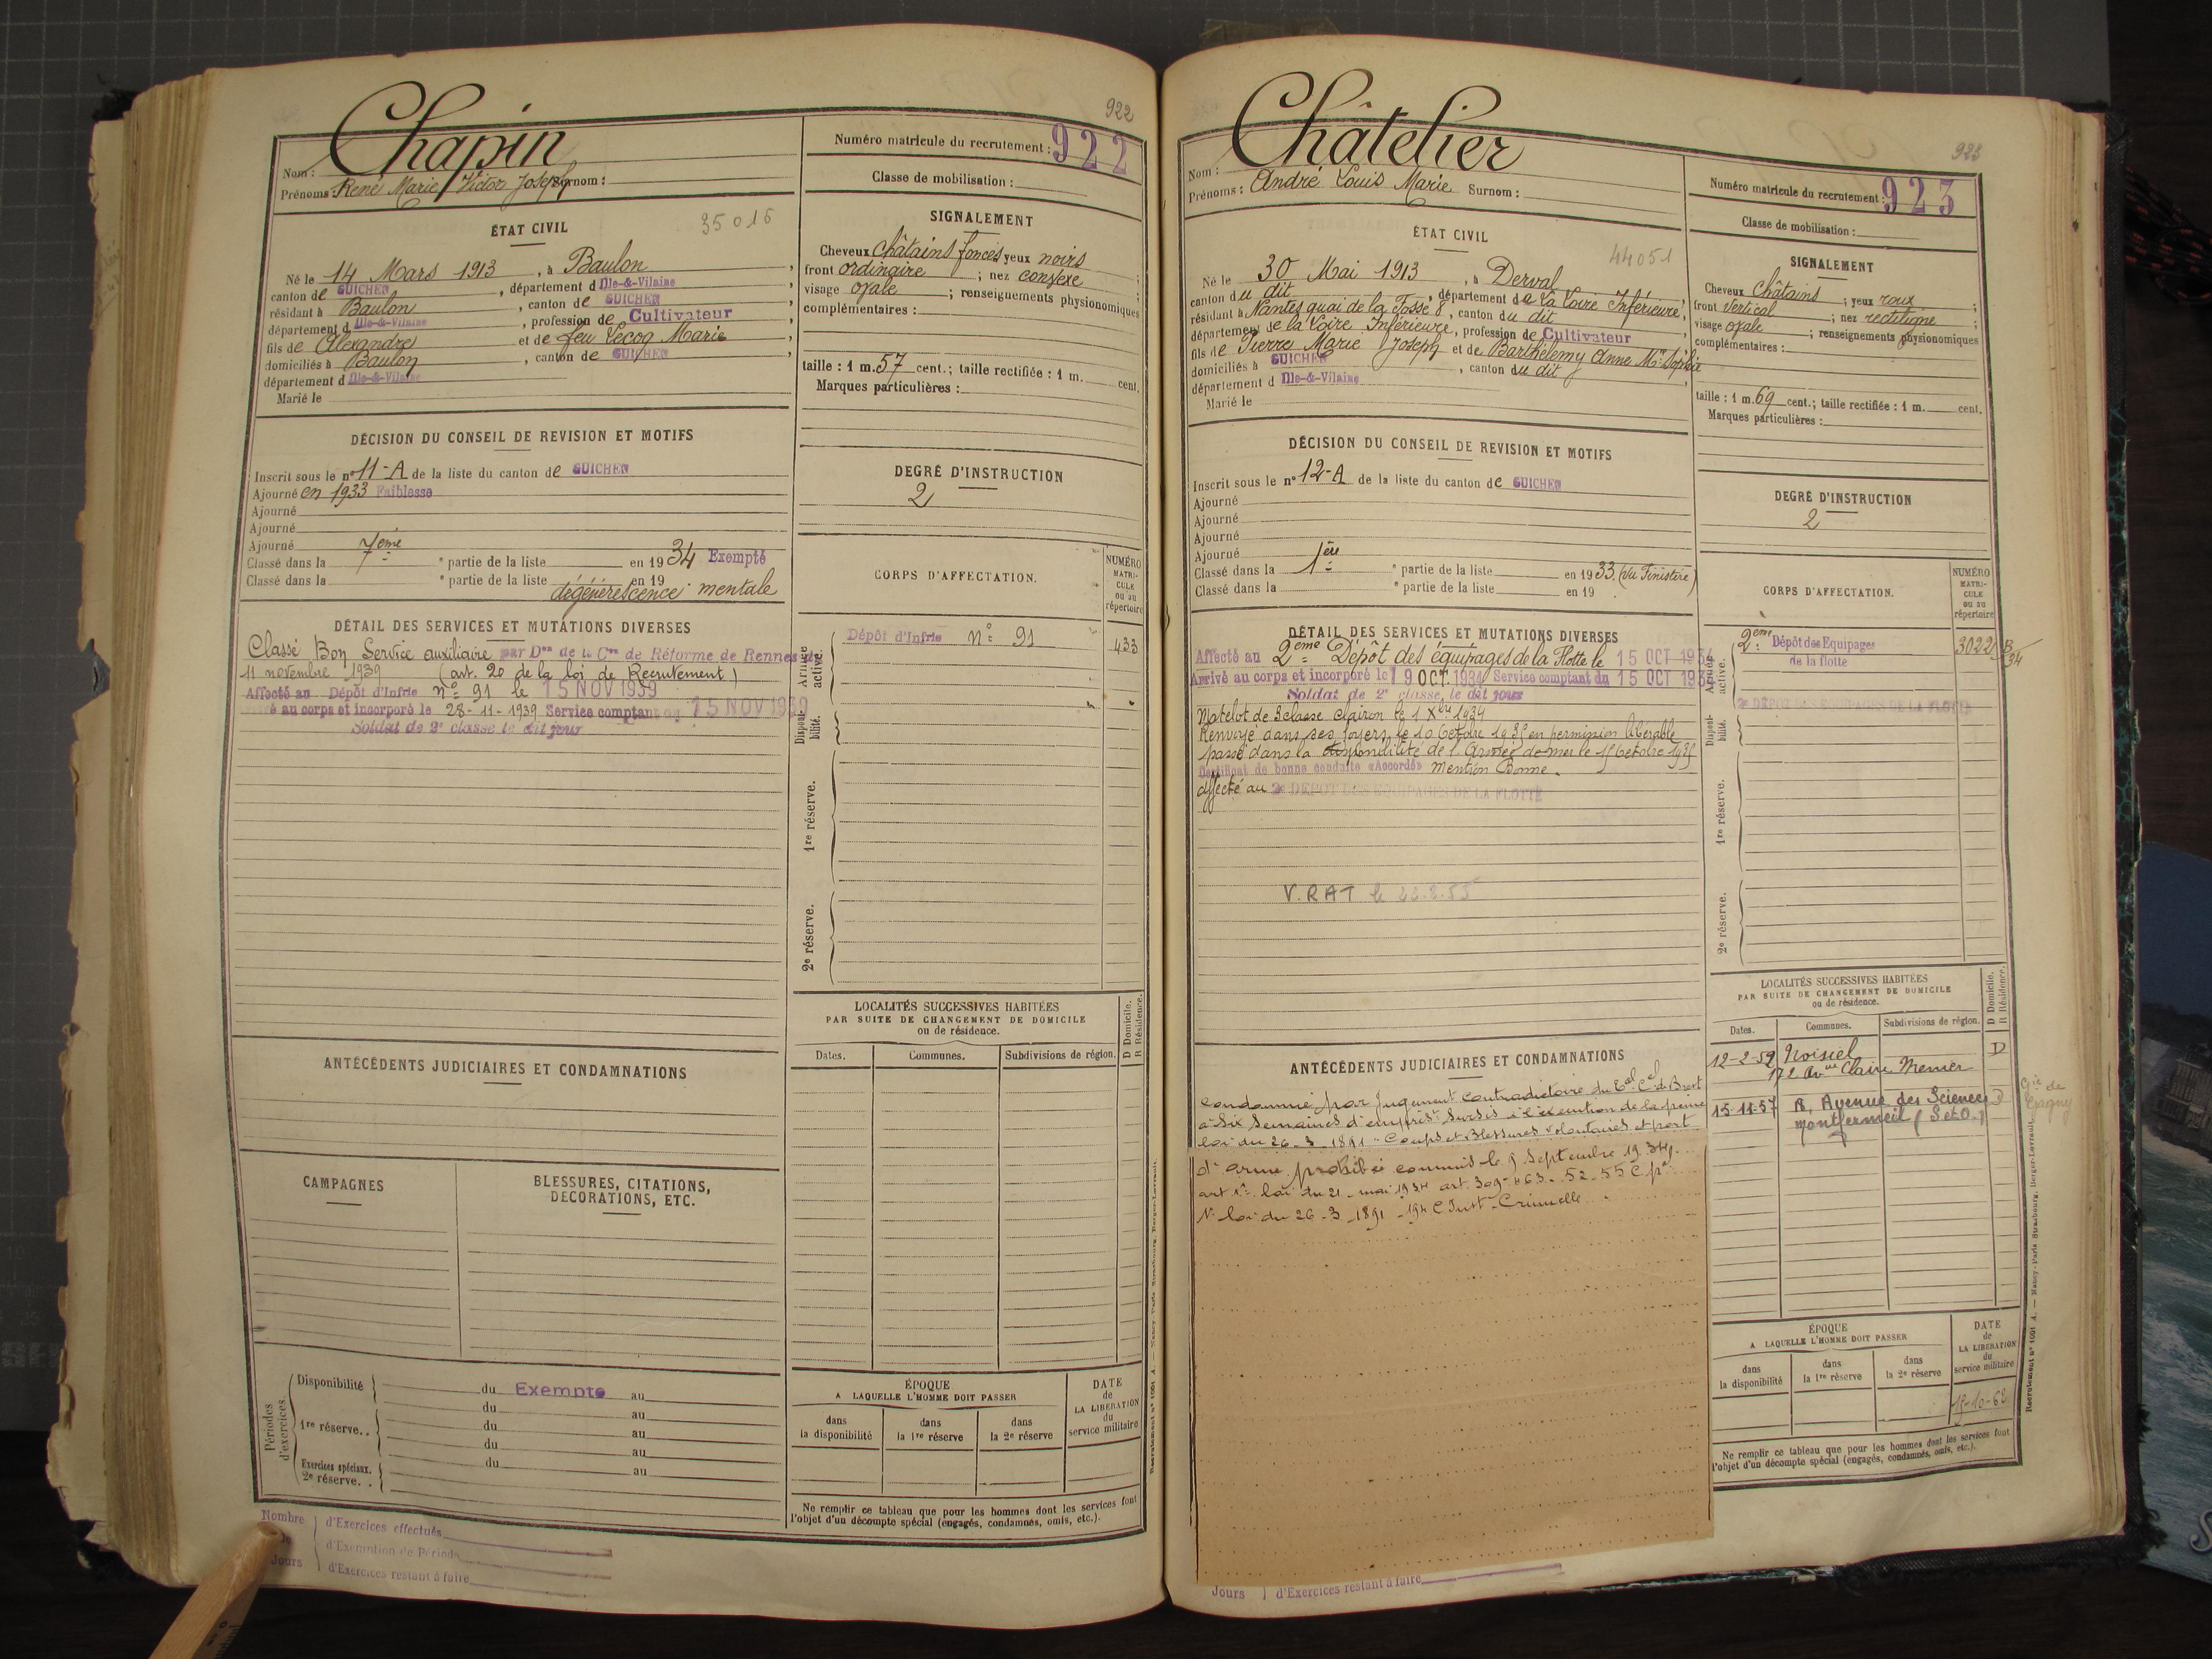 922
Nom : Chapin
Prénoms : René Marie Victor Joseph Surnom :
Numéro matricule du recrutement : 922
Classe de mobilisation :
ÉTAT CIVIL
35016
Né le 14 Mars 1913, à Baulon,
canton de GUICHEN, département d Ille-&-Vilaine
résidant à Baulon, canton de GUICHEN
département d Ille-&-Vilaine, profession de Cultivateur
fils de Alexandre et de feu Lecoq Marie
domiciliés à Baulon, canton de GUICHEN,
département d Ille-&-Vilaine
Marié le
SIGNALEMENT
Cheveux châtains foncés yeux noirs ;
front ordinaire ; nez convexe ;
visage ovale ; renseignements physionomiques
complémentaires :
taille : 1 m. 57 cent.; taille rectifiée : 1 m. cent.
Marques particulières :
DÉCISION DU CONSEIL DE REVISION ET MOTIFS
Inscrit sous le n° 11-A de la liste du canton de GUICHEN
Ajourné en 1933 Faiblesse
Ajourné
Ajourné
Ajourné
Classé dans la 7eme partie de la liste en 1934 Exempté
Classé dans la partie de la liste en 19
dégénérescence mentale
DEGRÉ D'INSTRUCTION
2
DÉTAIL DES SERVICES ET MUTATIONS DIVERSES
Classé Bon Service auxiliaire par Don de la Con de Réforme de Rennes du
11 novembre 1939 (art. 20 de la loi de Recrutement)
Affecté au Dépôt d'Infrie n° 91 le 15 NOV 1939
au corps et incorporé le 28-11-1939 Service comptant du 15 NOV 1939
Soldat de 2e classe le dit jour
CORPS D'AFFECTATION.
NUMÉRO
MATRI-
CULE
ou au
répertoire
Armée active.
Dépôt d'Infrie n° 91 433
Disponi-bilité.
1re réserve.
2e réserve.
LOCALITÉS SUCCESSIVES HABITÉES
PAR SUITE DE CHANGEMENT DE DOMICILE
ou de résidence.
D Domicile.
R Résidence.
Dates. Communes. Subdivisions de région.
ANTÉCÉDENTS JUDICIAIRES ET CONDAMNATIONS
CAMPAGNES
BLESSURES, CITATIONS,
DÉCORATIONS, ETC.
Périodes d'exercices.
Disponibilité du Exempté au
1re réserve.. du au
du au
Exercices spéciaux. du au
2e réserve.. du au
ÉPOQUE
A LAQUELLE L'HOMME DOIT PASSER
dans la disponibilité
dans la 1re réserve
dans la 2e réserve
DATE
de
LA LIBÉRATION
du
service militaire
Ne remplir ce tableau que pour les hommes dont les services font
l'objet d'un décompte spécial (engagés, condamnés, omis, etc.).
Nombre d'Exercices effectués
de d'Exemption de Période
Jours d'Exercices restant à faire
923
Nom : Châtelier
Prénoms : André Louis Marie Surnom :
Numéro matricule du recrutement : 923
Classe de mobilisation :
ÉTAT CIVIL
44051
Né le 30 Mai 1913, à Derval
canton du dit, département de la Loire Inférieure,
résidant à Nantes quai de la Fosse 8, canton du dit
département de la Loire Inférieure, profession de Cultivateur
fils de Pierre Marie Joseph et de Barthélemy Anne Mie Sophie
domiciliés à GUICHEN, canton du dit
département d Ille-&-Vilaine
Marié le
SIGNALEMENT
Cheveux châtains ; yeux roux ;
front vertical ; nez rectiligne ;
visage ovale ; renseignements physionomiques
complémentaires :
taille : 1 m. 69 cent.; taille rectifiée : 1 m. cent.
Marques particulières :
DÉCISION DU CONSEIL DE REVISION ET MOTIFS
Inscrit sous le n° 12-A de la liste du canton de GUICHEN
Ajourné
Ajourné
Ajourné
Ajourné
Classé dans la 1ère partie de la liste en 1933. (du Finistère)
Classé dans la partie de la liste en 19
DEGRÉ D'INSTRUCTION
2
DÉTAIL DES SERVICES ET MUTATIONS DIVERSES
Affecté au 2eme Dépôt des équipages de la Flotte le 15 OCT 1934
Arrivé au corps et incorporé le 19 OCT. 1934 Service comptant du 15 OCT 1934
Soldat de 2e classe, le dit jour
Matelot de 3 classe clairon le 1 Xbre 1934
Renvoyé dans ses foyers le 10 Octobre 1935 en permission libérable
passé dans la disponibilité de l'Armée de mer le 15 Octobre 1935
Certificat de bonne conduite «Accordé» Mention Bonne.
affecté au 2e DÉPÔT DES ÉQUIPAGES DE LA FLOTTE
V.RAT le 22.2.55
CORPS D'AFFECTATION.
NUMÉRO
MATRI-
CULE
ou au
répertoire
Armée active.
2eme Dépôt des Equipages
de la flotte
3022 B
34
2e DÉPÔT DES ÉQUIPAGES DE LA FLOTTE
Disponi-bilité.
1re réserve.
2e réserve.
LOCALITÉS SUCCESSIVES HABITÉES
PAR SUITE DE CHANGEMENT DE DOMICILE
ou de résidence.
D Domicile.
R Résidence.
Dates. Communes. Subdivisions de région.
12-2-52 Noisiel D
172 Avue Claire Menier
15-11-57 8, Avenue des Sciences D
Montfermeil (S et O.)
Gie de Gagny
ANTÉCÉDENTS JUDICIAIRES ET CONDAMNATIONS
condamné par Jugement contradictoire du Tal Cel de Brest
à Six Semaines d'emprist Sursis à l'exécution de la peine
loi du 26-3-1891 "Coups et Blessures volontaires et port
d'arme prohibée commis le 9 Septembre 1934.
art 1er loi du 21-mai 1934 art. 309-463-52-55 C.pal
1er loi du 26-3-1891 -194 C Inst-Criminelle
ÉPOQUE
A LAQUELLE L'HOMME DOIT PASSER
dans la disponibilité
dans la 1re réserve
dans la 2e réserve
DATE
de
LA LIBÉRATION
du
service militaire
15-10-62
Ne remplir ce tableau que pour les hommes dont les services font
l'objet d'un décompte spécial (engagés, condamnés, omis, etc.).
Jours d'Exercices restant à faire
Recrutement n° 1001 A. — Nancy-Paris Strasbourg, Berger-Levrault.